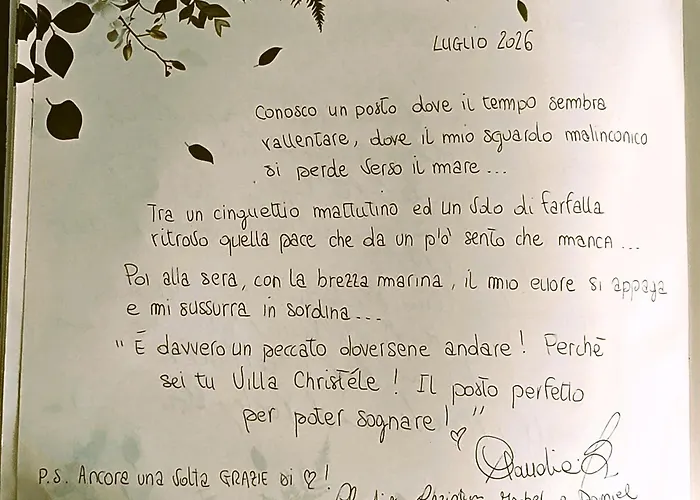 LUGLIO 2026
Conosco un posto dove il tempo sembra
rallentare, dove il mio sguardo malinconico
si perde verso il mare...
Tra un cinguettio mattutino ed un volo di farfalla
ritrovo quella pace che da un pò' sento che manca...
Poi alla sera, con la brezza marina, il mio cuore si appaga
e mi sussurra in sordina...
" È davvero un peccato doversene andare! Perchè
sei tu Villa Christéle! Il posto perfetto
per poter sognare! "♡
Claudia
P.S. Ancora una volta GRAZIE DI ♡!
Claudia, Mabel e Daniel